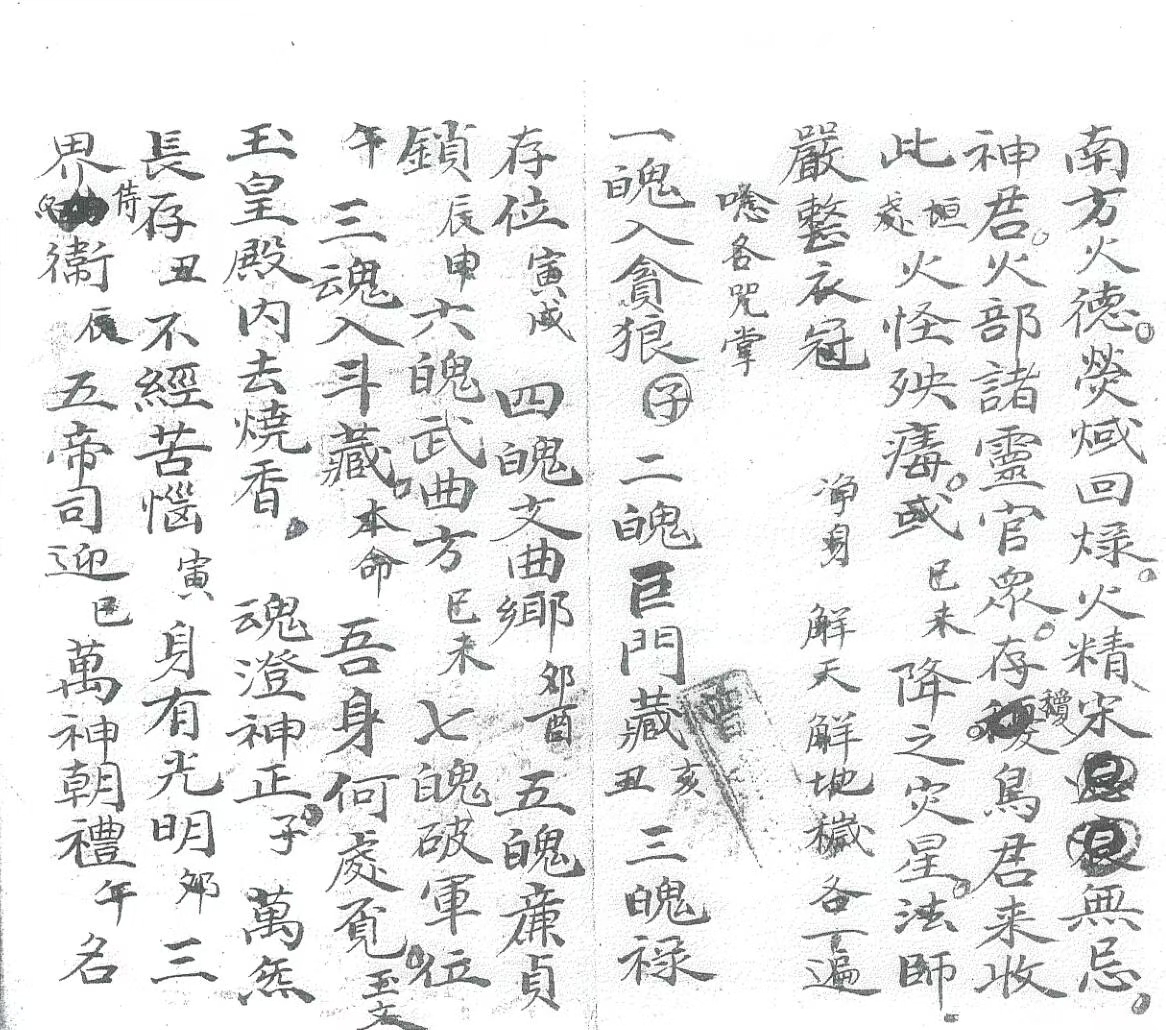 南方火德。熒惑回祿。火精宋無忌。
神君。火部諸靈官眾。存鳥君来收
此垣處火怪殃痗。或巳未降之灾星。法師
嚴整衣冠 净身 解天解地穢各一遍
噫各咒掌
一魄入貪狼子 二魄巨門藏亥丑 三魄禄
存位寅戌 四魄文曲鄉卯酉 五魄廉貞
鎖辰申六魄武曲方巳未 七魄破軍位
午 三魂入斗藏。本命 吾身何處覓。玉文
玉皇殿内去燒香。 魂澄神正。子 萬炁
長存丑 不經苦惱寅 身有光明卯 三
界侍衛辰 五帝司迎巳 萬神朝禮午 名